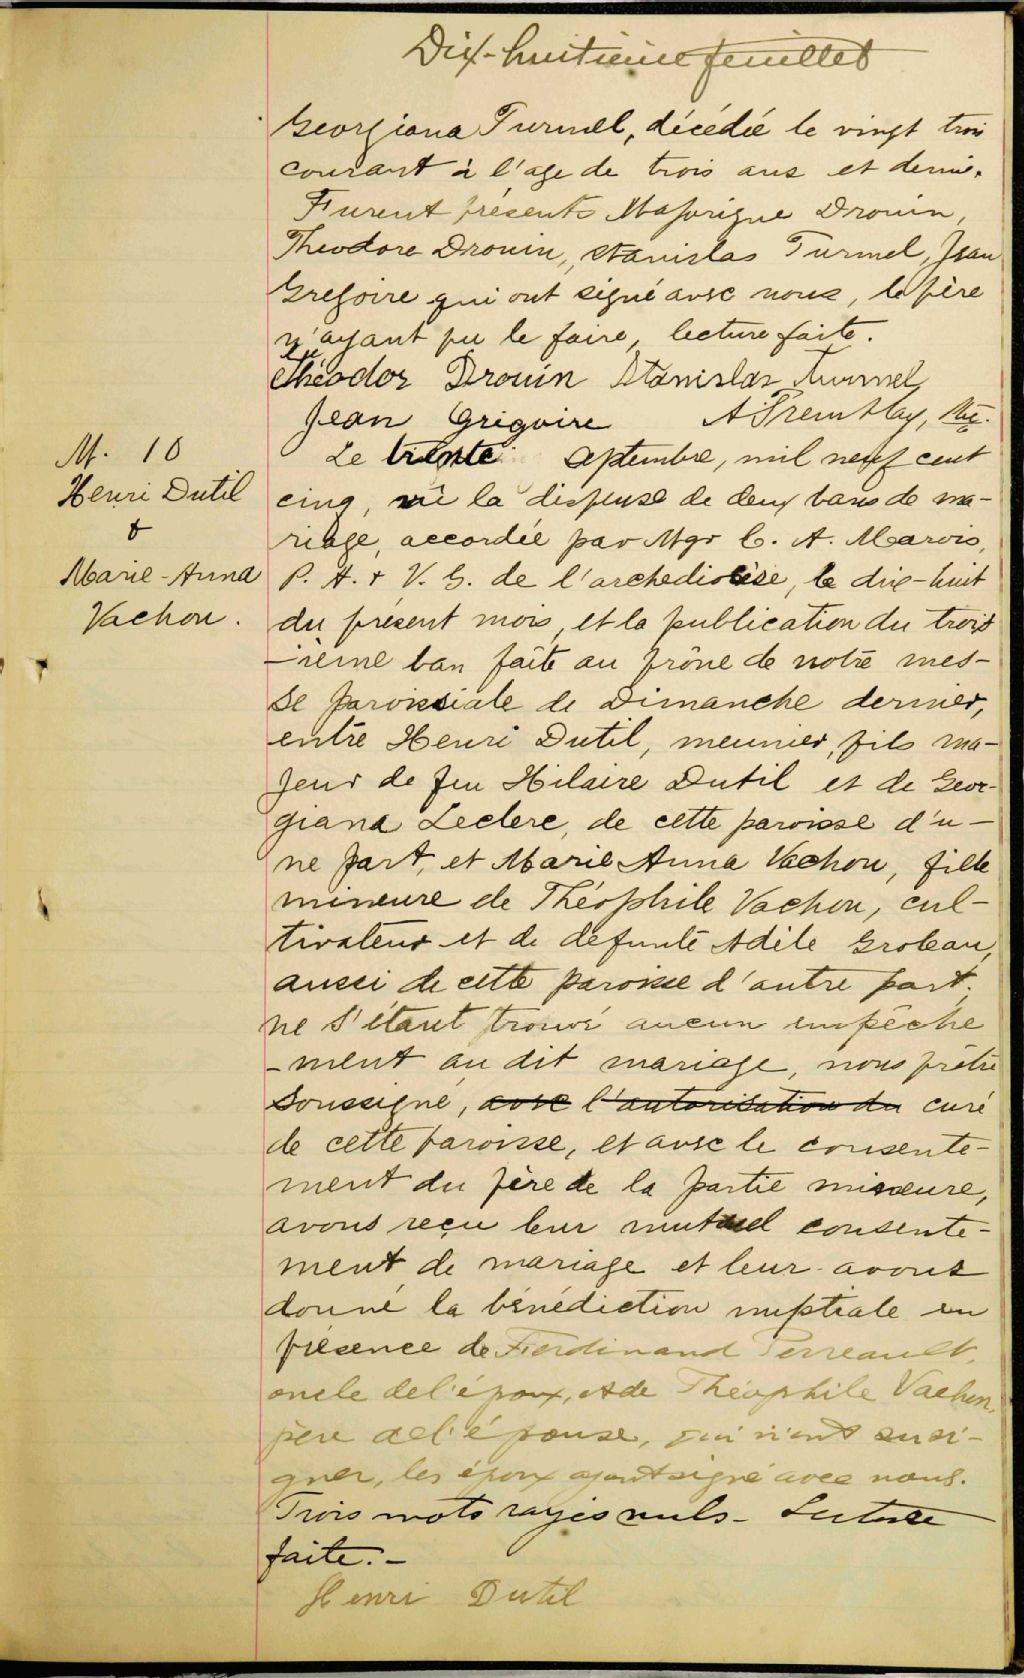 Dix-huitième feuillet
Georgiana Turmel, décédée le vingt trois
courant à l'age de trois ans et demie.
Furent présents Majorique Drouin,
Theodore Drouin, Stanislas Turmel, Jean
Gregoire qui ont signé avec nous, le père
n'ayant pu le faire, lecture faite.
Théodor Drouin Stanislas Turmel
Jean Grégoire A Tremblay, Vic.
M. 10
Henri Dutil
&
Marie-Anna
Vachon.
Le trente septembre, mil neuf cent
cinq, vû la dispense de deux bans de ma-
riage, accordée par Mgr C. A. Marois,
P. A. & V. G. de l'archediocèse, le dix-huit
du présent mois, et la publication du trois
-ième ban faite au prône de notre mes-
se paroissiale de Dimanche dernier,
entre Henri Dutil, meunier, fils ma-
jeur de feu Hilaire Dutil et de Geor-
giana Leclerc, de cette paroisse d'u-
ne part, et Marie Anna Vachon, fille
mineure de Théophile Vachon, cul-
tivateur et de defunte Adèle Groleau,
aussi de cette paroisse d'autre part.
ne s'étant trouvé aucun empêche
-ment au dit mariage, nous prêtre
soussigné, avec l'autorisation du curé
de cette paroisse, et avec le consente-
ment du père de la partie mineure,
avons reçu leur mutuel consente-
ment de mariage et leur avons
donné la bénédiction nuptiale en
présence de Ferdinand Perreault,
oncle de l'époux, et de Théophile Vachon,
père de l'épouse, qui n'ont su si-
gner, les époux ayant signé avec nous.
Trois mots rayés nuls - Lecture
faite. -
Henri Dutil